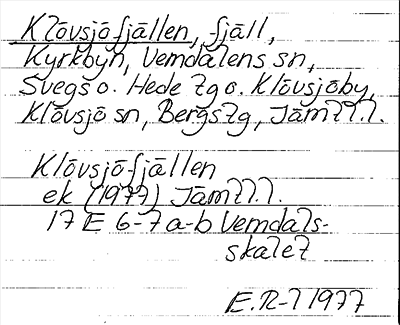 Klövsjöfjällen, fjäll,
Kyrkbyn, Vemdalens sn,
Svegs o. Hede tg o. Klövsjöby,
Klövsjö sn, Bergs tg, Jämtl.l.
Klövsjö-fjällen
ek (1977) Jämtl.l.
17 E 6-7 a-b Vemdals-
skalet
E.R-l 1977